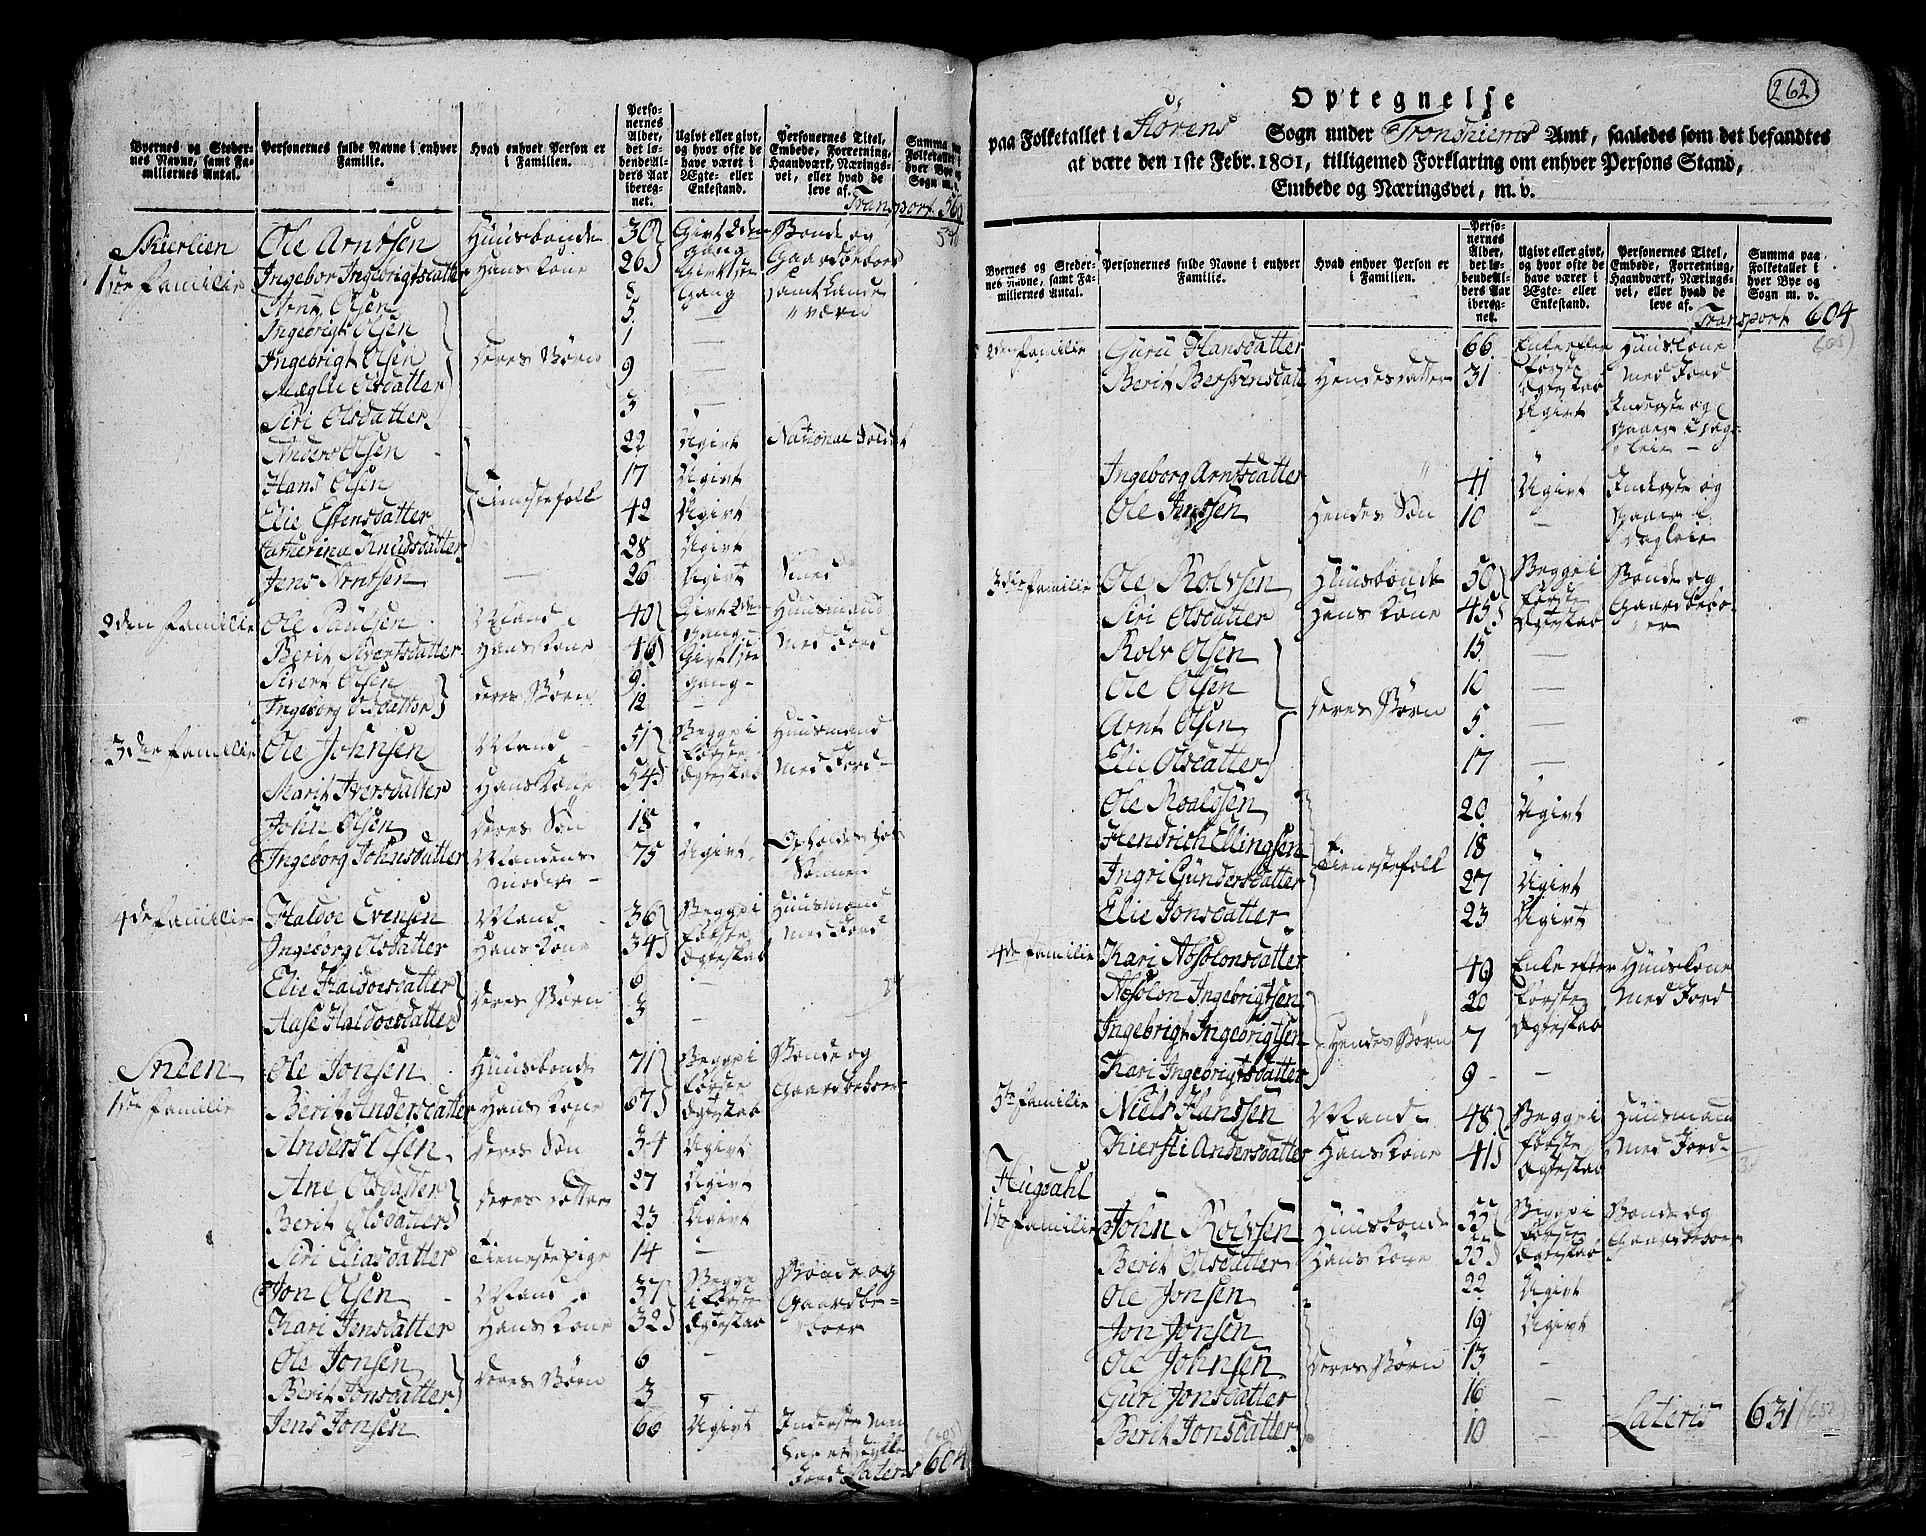 Byernes og Stedernes Navne, samt Familiernes Antal.
Personernes fulde Navne i enhver Familie.
Hvad enhver Person er i Familien.
Personernes Alder, det løbende Alders Aar iberegnet.
Ugivt eller givt, og hvor ofte de have været i Ægte- eller Enkestand.
Personernes Titel, Embede, Forretning, Haandværk, Næringsvei, eller hvad de leve af.
Summa paa Folketallet i hver Bye og Sogn m. v.
Transport 560
Skierlien Ole Arntsen Huusbonde 30 Givt 2den Gang Bonde og
1ste Familie Ingebor Ingebrigtsdatter Hans Kone 26 Givt 1ste Gang Gaardbeboer
Arnt Olsen 8
Ingebrigt Olsen 5
Ingebrigt Olsen deres Børn 1
Magli Olsdatter 9
Siri Olsdatter 3
Anders Olsen 22 Ugivt National Soldat
Hans Olsen 17 Ugivt
Elie Estensdatter Tienestefolk 42 Ugivt
Catherina Knudsdatter 28 Ugivt
Jens Arntsen 26 Ugivt Smed
2den Familie Ole Paulsen Mand 40 Givt 2den gang Huusmand
Berit Sivertsdatter Hans Kone 46 Givt 1ste gang Med Jord
Sivert Olsen deres Børn 9
Ingeborg Olsdatter 12
3die Familie Ole Johnsen Mand 51 Begge i Huusmand
Marit Iversdatter Hans Kone 54 første Ægteskab Med Jord
John Olsen deres Søn 18
Ingeborg Johnsdatter Mandens Moder 75 Ugivt Opholdes hos Sønnen
4de Familie Haldoe Evensen Mand 36 Begge i Huusmand
Ingeborg Olsdatter Hans Kone 34 første Ægteskab Med Jord
Elie Haldorsdatter deres Børn 6
Aase Haldosdatter 3
Sneen Ole Jonsen Huusbonde 71 Begge i Bonde og
1ste Familie Berit Andersdatter Hans Kone 67 første Ægteskab Gaardbeboer
Anders Olsen deres Søn 34 Ugivt
Ane Olsdatter deres Døttre 27 Ugivt
Berit Olsdatter 23 Ugivt
Siri Eliasdatter Tienestepige 14
Jon Olsen Mand 37 Begge i første Bonde og
Kari Jensdatter Hans Kone 32 Ægteskab Gaardbeboer
Ole Jonsen deres Børn 6
Berit Jonsdatter 3
Jens Jonsen 60 Ugivt Inderste
Jord Lateris 604
262
Optegnelse
paa Folketallet i Størens Sogn under Tronhiems Amt, saaledes som det befandtes
at være den 1ste Febr. 1801, tilligemed Forklaring om enhver Persons Stand,
Embede og Næringsvei, m. v.
Byernes og Stedernes Navne, samt Familiernes Antal.
Personernes fulde Navne i enhver Familie.
Hvad enhver Person er i Familien.
Personernes Alder, det løbende Alders Aar iberegnet.
Ugivt eller givt, og hvor ofte de have været i Ægte- eller Enkestand.
Personernes Titel, Embede, Forretning, Haandværk, Næringsvei, eller hvad de leve af.
Summa paa Folketallet i hver Bye og Sogn m. v.
Transport 604
2den Familie Guru Hansdatter 66 Enke efter første Ægteskab Huuskone Med Jord
Berit Bersvensdatt Hendes datter 31 Ugivt Inderste og gaaer i Dagleie
Ingeborg Arntsdatter 41 Ugivt Inderste og
Ole Jenssen Hendes Søn 10 gaaer i Dagleie
3die Familie Ole Rolvsen Huusbonde 50 Begge i Bonde og
Siri Olsdatter Hans Kone 45 første Ægteskab Gaardbeboer
Rolv Olsen 15
Ole Olsen 10
Arnt Olsen deres Børn 5
Elie Olsdatter 17
Ole Roaldsen 20 Ugivt
Hendrich Ellingsen 18
Ingri Gundersdatter Tienestefolk 27 Ugivt
Elie Jonsdatter 23 Ugivt
4de Familie Kari Absolonsdatter 49 Enke efter Huuskone
Absolon Ingebrigtsen 20 første Med Jord
Ingebrigt Ingebrigtsen Hendes Børn 7 Ægteskab
Kari Ingebrigtsdatter 9
5te Familie Niels Hanssen Mand 48 Begge i Huusmand
Kiersti Andersdatter Hans Kone 41 første Ægteskab Med Jord
Hugdahl
1ste Familie John Rolvsen Huusbonde 55 Begge i Bonde og
Berit Olsdatter Hans Kone 53 første Ægteskab Gaardbeboer
Ole Jonsen 22 Ugivt
Jon Jonsen 19 Ugivt
Ole Johnsen deres Børn 13
Guri Jonsdatter 16
Berit Jonsdatter 10
Lateris 631